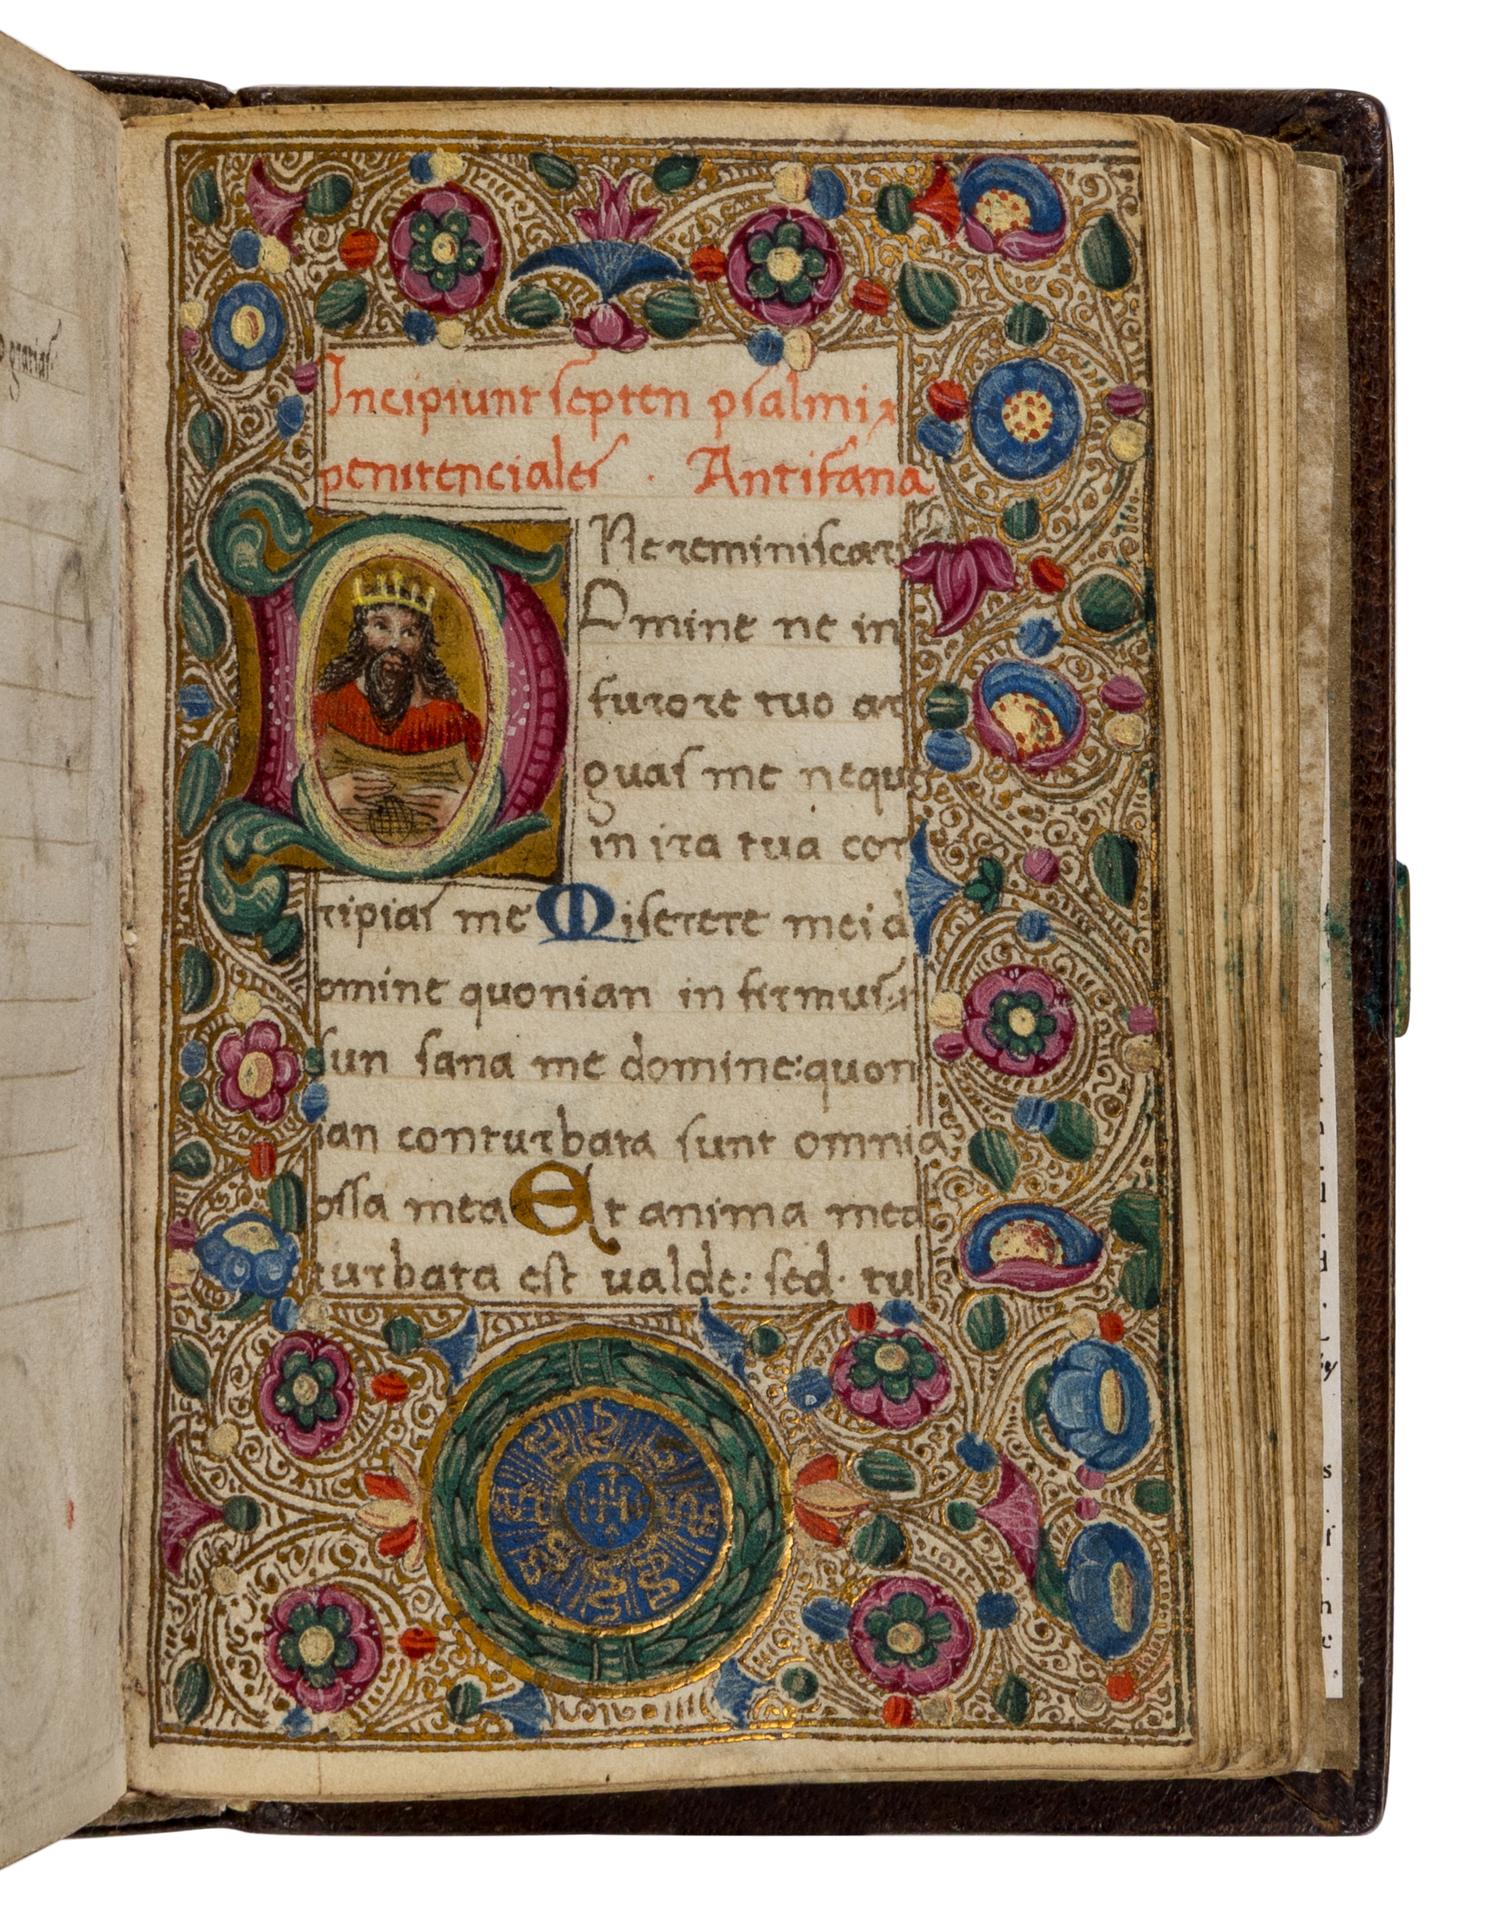 Incipiunt septen psalmi
penitenciales . Antifana
Ne reminiscaris
Dmine ne in
furore tuo ar
guas me neque
in ira tua cor
ripias me Miserere mei d
omine quonian in firmus
sun sana me domine: quon
ian conturbata sunt omnia
ossa mea Et anima mea
turbata est ualde: sed. tu